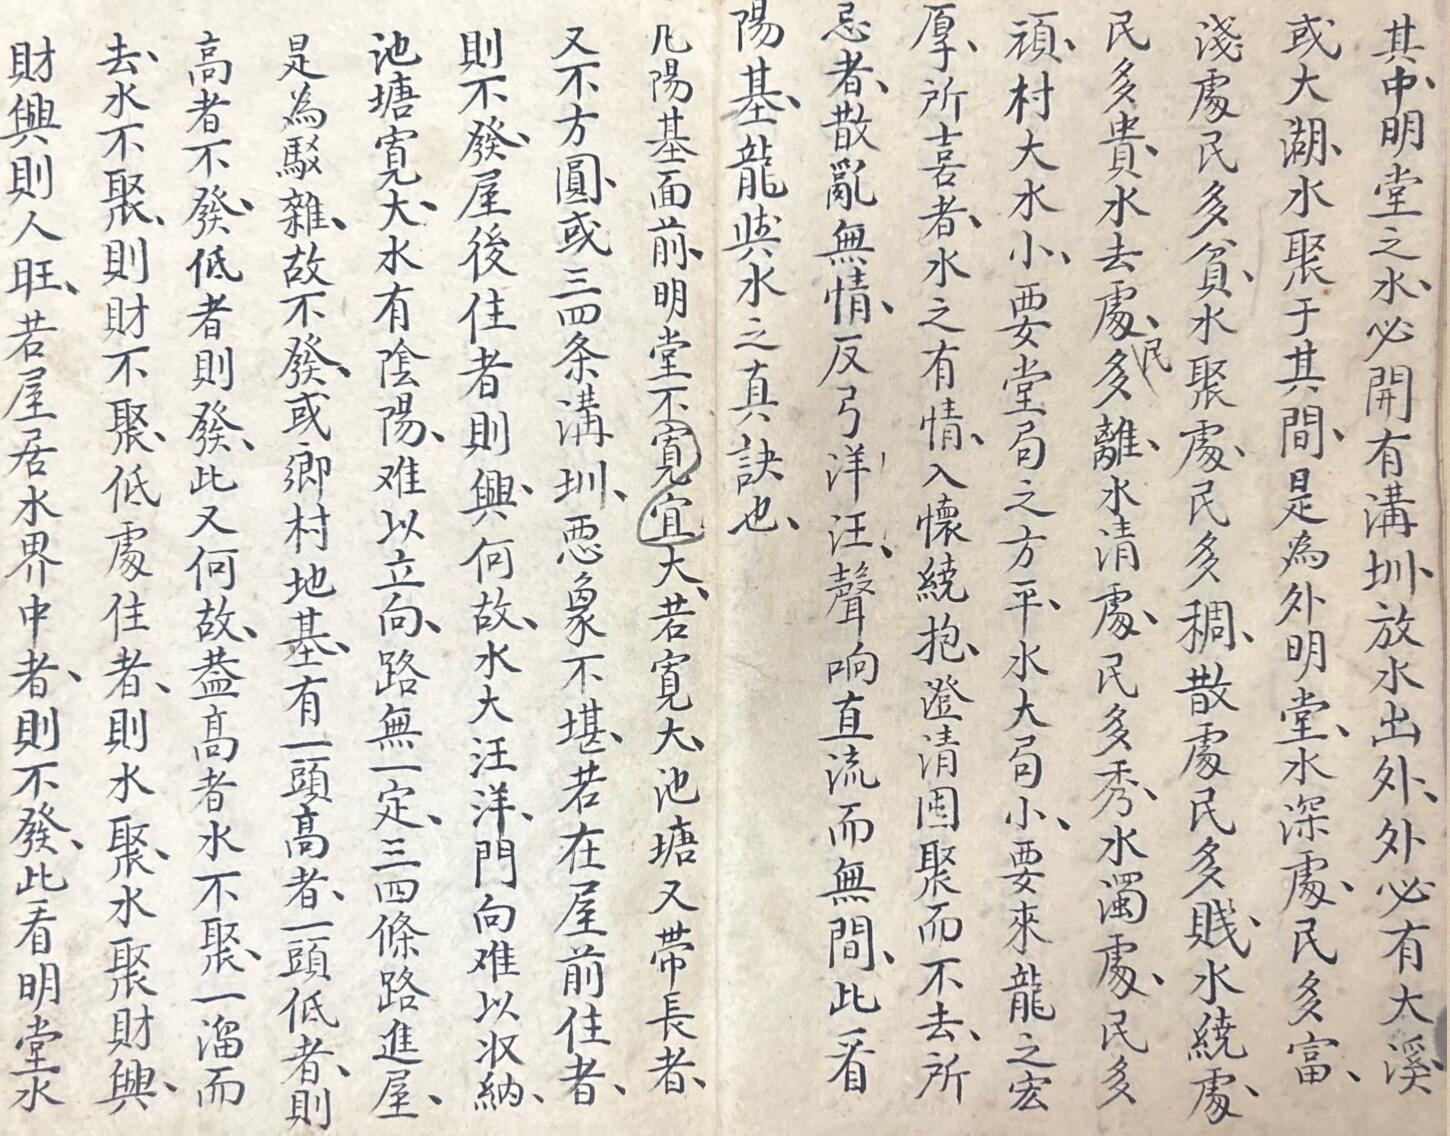 其中、明堂之水、必開有溝圳、放水出外、外必有大溪、
或大湖、水聚于其間、是為外明堂、水深處、民多富、
淺處民多貧、水聚處、民多稠、散處民多賤、水繞處、
民多貴、水去處、民多離、水清處、民多秀、水濁處、民多
頑、村大水小、要堂局之方平、水大局小、要來龍之宏
厚、所喜者、水之有情、入懷繞抱、澄清囤聚而不去、所
忌者、散亂無情、反弓洋汪、聲响直流而無間、此看
陽基、龍與水之真訣也、
凡陽基面前、明堂不寬宜大、若寬大、池塘又帶長者、
又不方圓、或三四条溝圳、惡象不堪、若在屋前住者、
則不發、屋後住者則興、何故、水大汪洋、門向难以收納、
池塘寬大、水有陰陽、难以立向、路無一定、三四條路進屋、
是為駁雜、故不發、或鄉村地基、有一頭高者、一頭低者、則
高者不發、低者則發、此又何故、葢高者水不聚、一溜而
去、水不聚、則財不聚、低處住者、則水聚、水聚財興、
財興則人旺、若屋居水界中者、則不發、此看明堂水